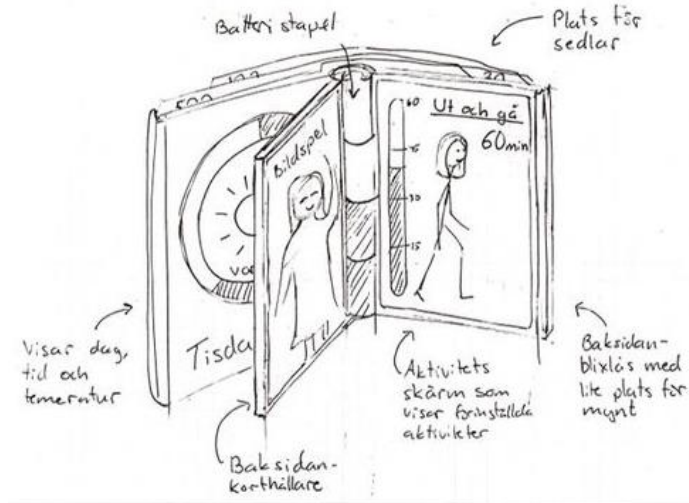 Batteri stapel
Plats för
sedlar
500
100
20
Bildspel
60
45
30
15
Ut och gå
60min
Tisda
Visar dag,
tid och
temeratur
Baksidan-
korthållare
Aktivitets
skärm som
visar förinställda
aktiviteter
Baksidan-
blixlås med
lite plats för
mynt